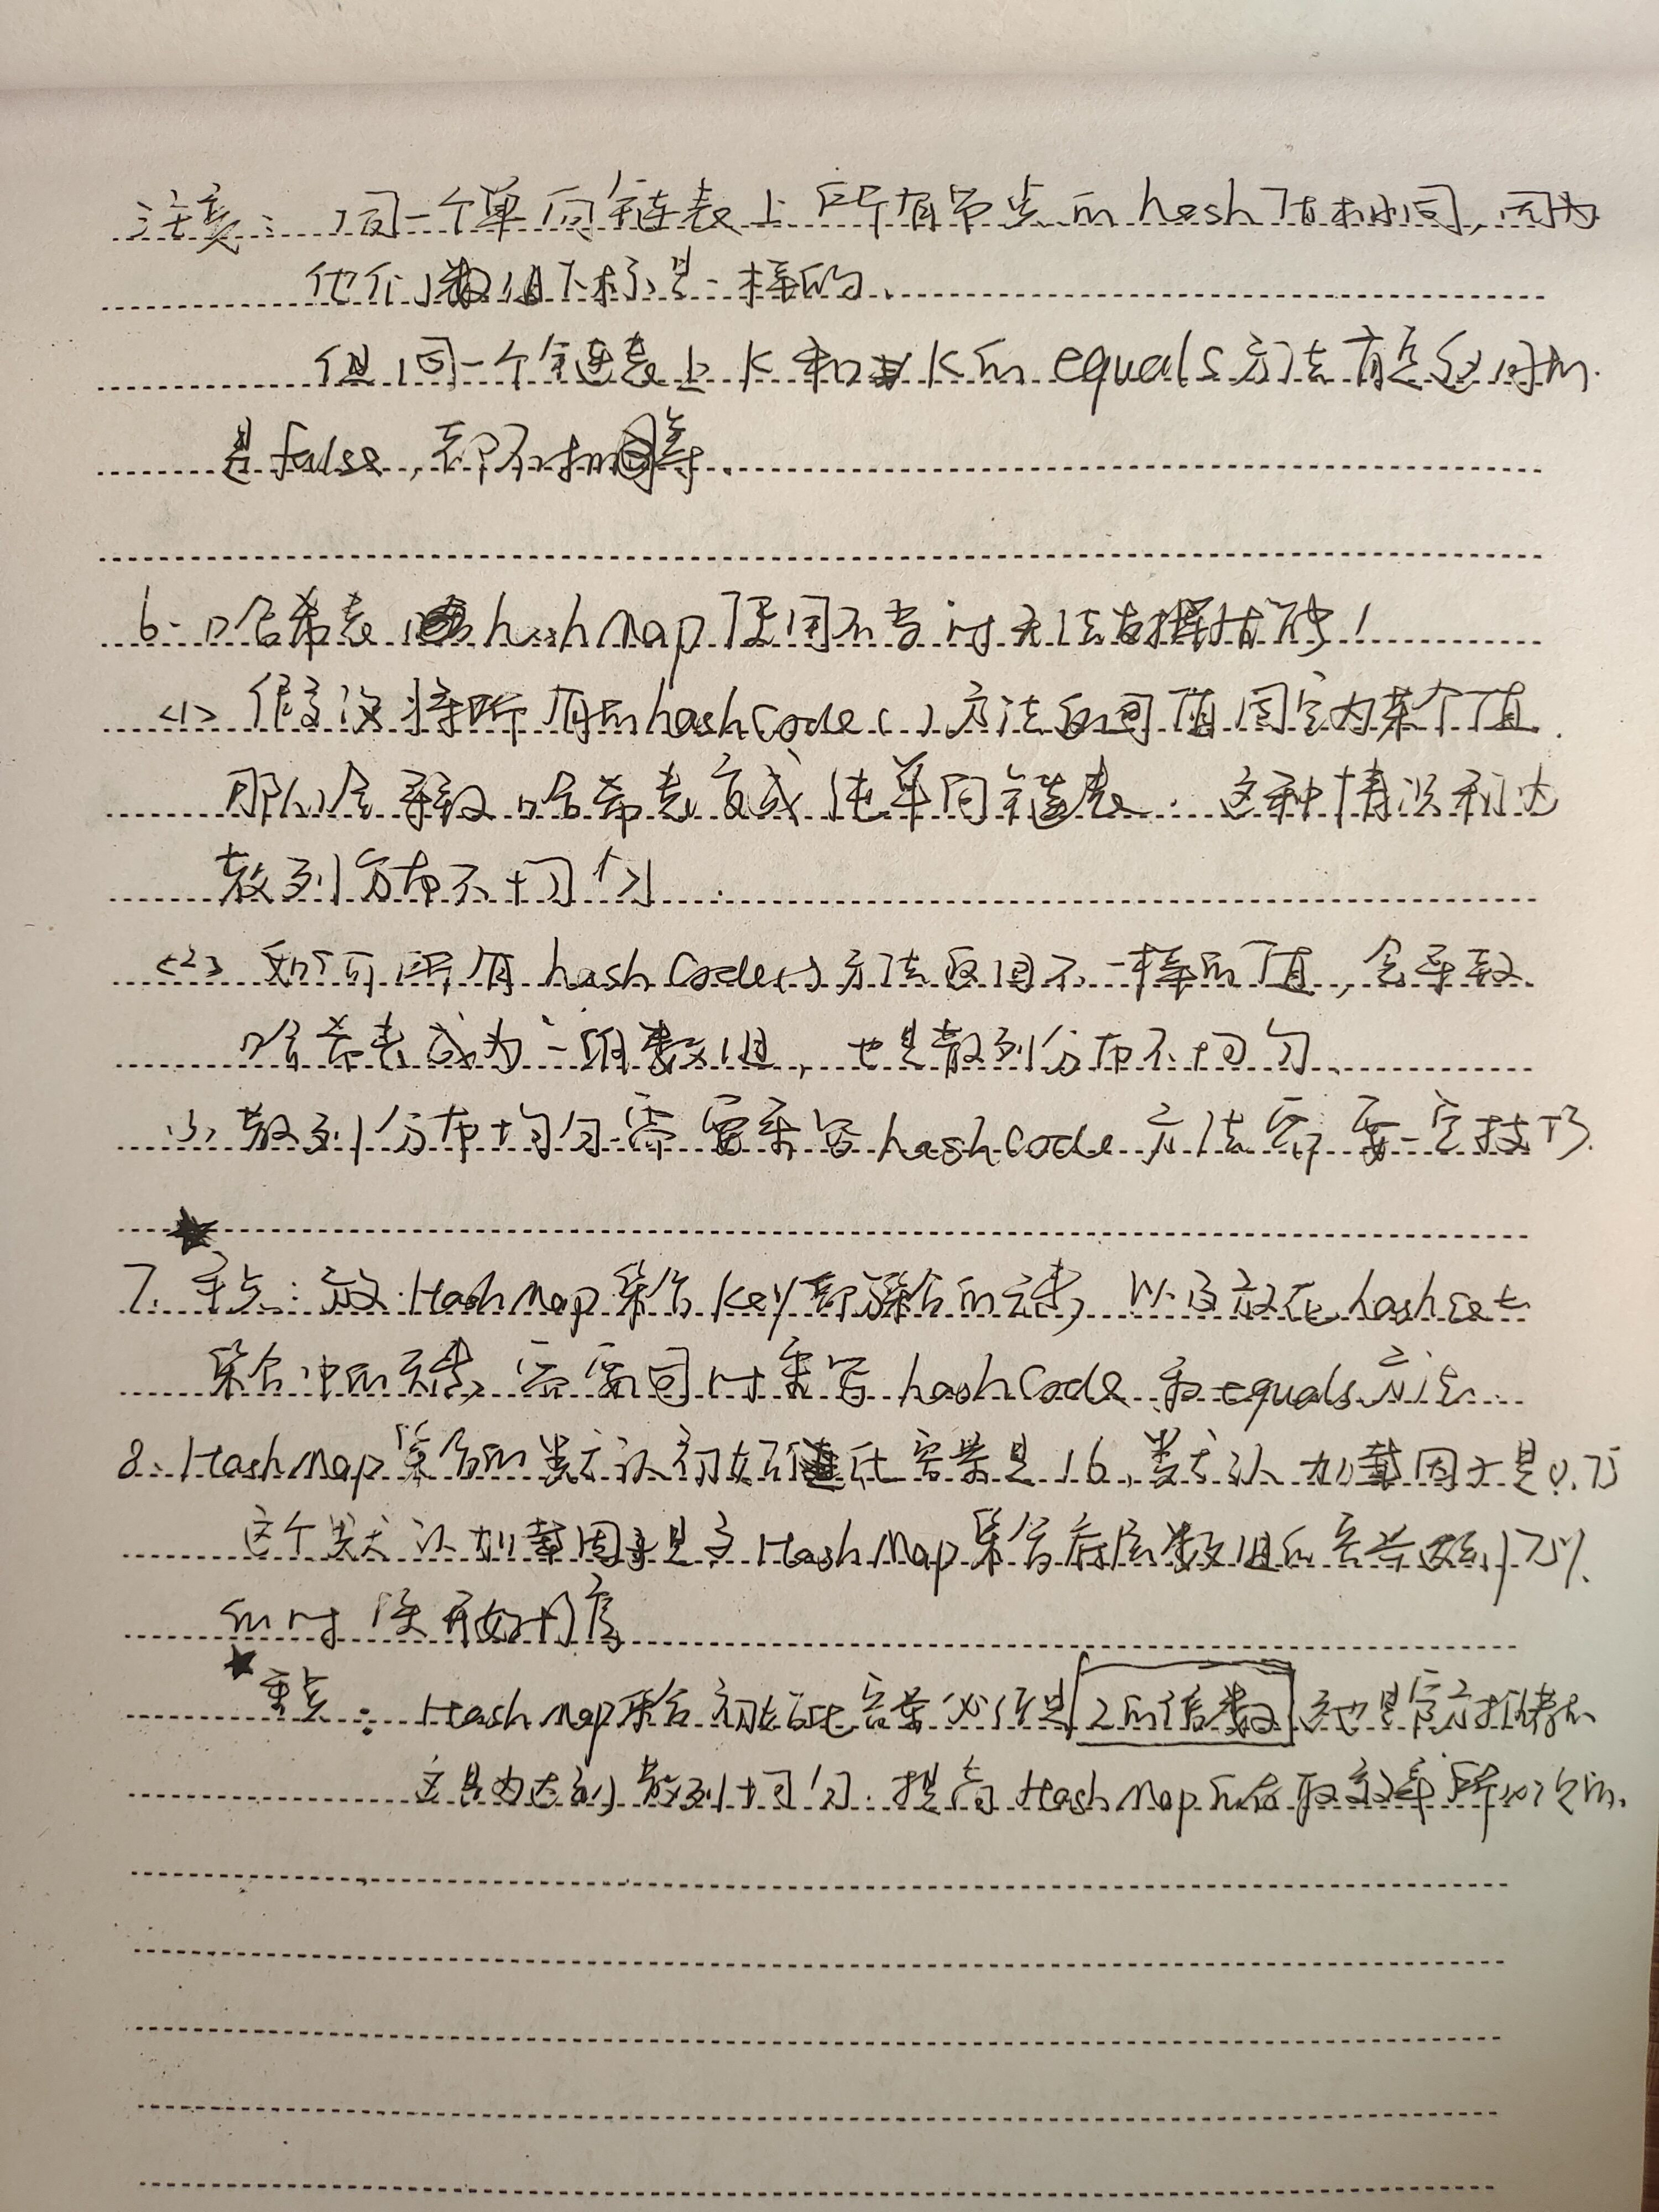 注意: 同一个单向链表上所有节点的hash值相同,因为
他们数组下标是一样的.
但同一个链表上K和K的equals方法肯定返回的
是false,都不相等.
6. 哈希表hashMap使用不当时无法发挥性能!
<1> 假设将所有的hashCode()方法返回值固定为某个值.
那么会导致哈希表变成纯单向链表. 这种情况称为
散列分布不均匀.
<2> 如何所有hashCode()方法返回不一样的值,会导致
哈希表成为一维数组,也是散列分布不均匀.
<3> 散列分布均匀需要重写hashCode方法需要一定技巧.
7. 重点: 放HashMap集合key部分的元素, 以及放在hashset
集合中的元素,需要同时重写hashCode和equals方法.
8. HashMap集合的默认初始化容量是16,默认加载因子是0.75
这个默认加载因子是当HashMap集合底层数组的容量达到75%
的时候开始扩容
重点: HashMap集合初始化容量必须是2的倍数,这也是官方推荐的
这是为达到散列均匀.提高HashMap的存取效率所必须的.